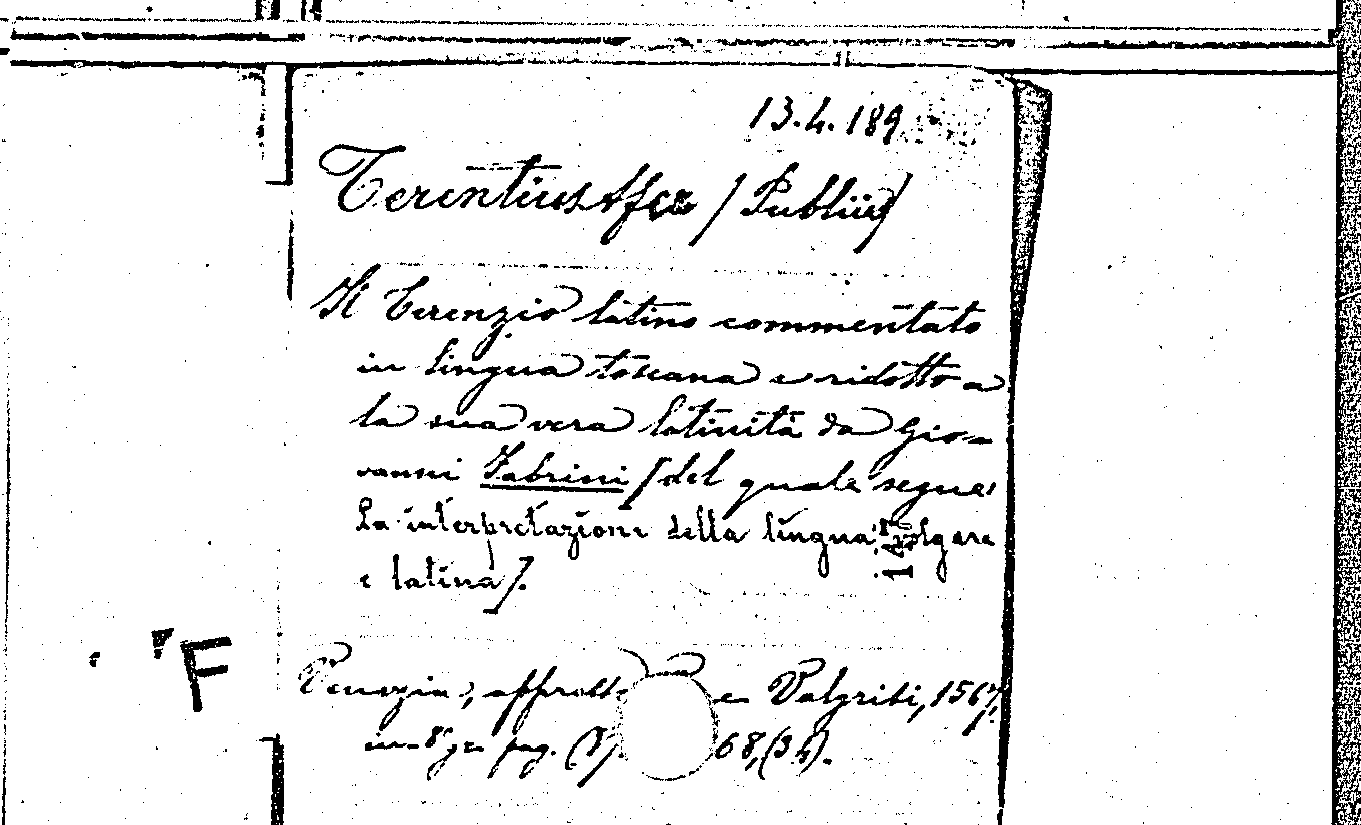 13.4.189
Terentius Afer (Publius)
Il Terenzio latino commentato
in lingua toscana e ridotto a
la sua vera latinità da Gio=
vanni Fabrini [del quale segue:
La interpretazione della lingua volgare
e latina].
Venezia, appresso Valgrisi, 1567,
in-8° gr. pag. (8). 68, (34).
F